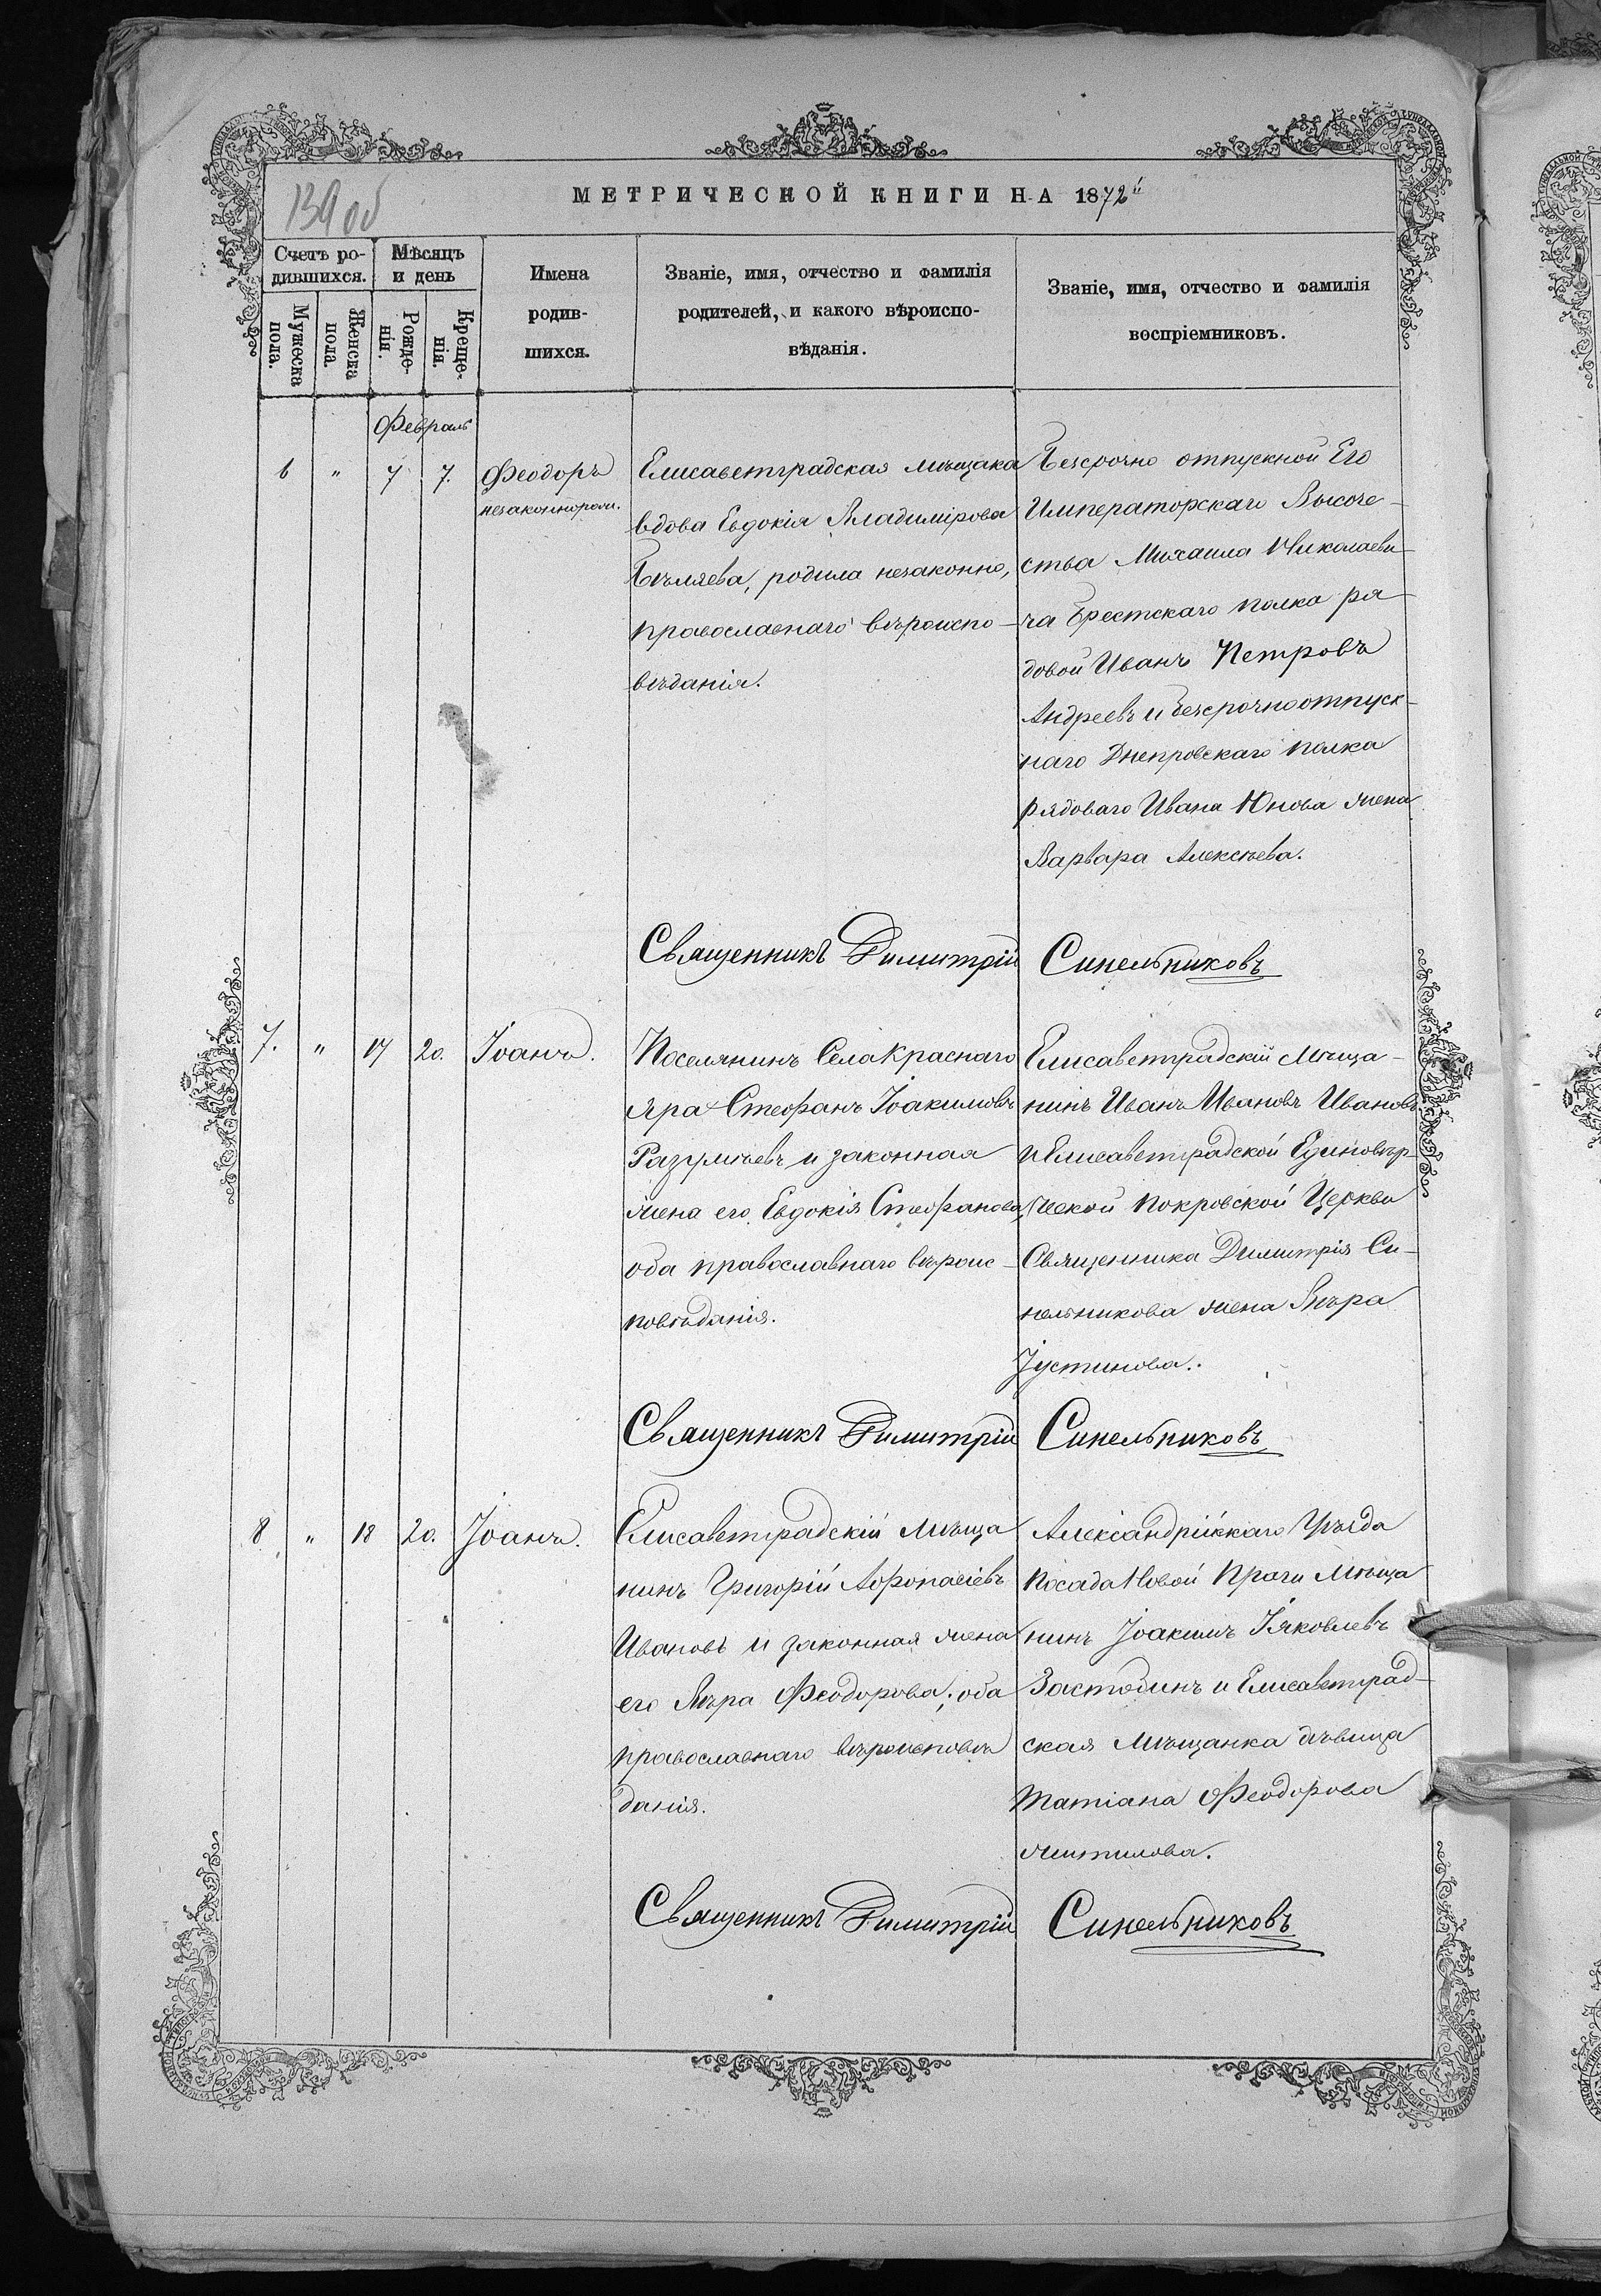 139 об
МЕТРИЧЕСКОЙ КНИГИ НА 1872й
Счетъ ро-
дившихся.
Мужеска
пола.
Женска
пола.
Мѣсяцъ
и день
Рожде-
нія.
Креще-
нія.
Имена
родив-
шихся.
Званіе, имя, отчество и фамилія
родителей, и какого вѣроиспо-
вѣданія.
Званіе, имя, отчество и фамилія
воспріемниковъ.
Февраль
6 " 7 7. Феодоръ
незаконнорож.
Елисаветградская мѣщака
вдова Евдокія Владимірова
Бѣляева, родила незаконно,
православнаго вѣроиспо-
вѣданія.
Безсрочно отпускной Его
Императорскаго Высоче-
ства Михаила Николаеви-
ча Брестскаго полка ря-
довой Иванъ Петровъ
Андреевъ и безсрочноотпуск-
наго Днепровскаго полка
рядоваго Ивана Юнова жена
Варвара Алексѣева.
Священникъ Димитрій Синельниковъ
7. " 17 20. Іоаннъ.
Поселянинъ Села Краснаго
Яра Стефанъ Іоакимовъ
Разумѣевъ и законная
жена его Евдокія Стефанова,
оба православнаго вѣроис-
повѣданія.
Елисаветградскій мѣща-
нинъ Иванъ Ивановъ Ивановъ
и Елисаветградской Единовѣр-
ческой Покровской Церкви
Священника Димитрія Си-
нельникова жена Вѣра
Іустинова.
Священникъ Димитрій Синельниковъ
8 " 18 20. Іоаннъ.
Елисаветградскій мѣща
нинъ Григорій Афонасіевъ
Ивановъ и законная жена
его Вѣра Феодорова; оба
православнаго вѣроисповѣ
данія.
Александрійскаго Уѣзда
Посада Новой Праги мѣща
нинъ Іоакимъ Іаковлевъ
и Елисаветград-
ская мѣщанка дѣвица
Татіана Феодорова
Священникъ Димитрій Синельниковъ